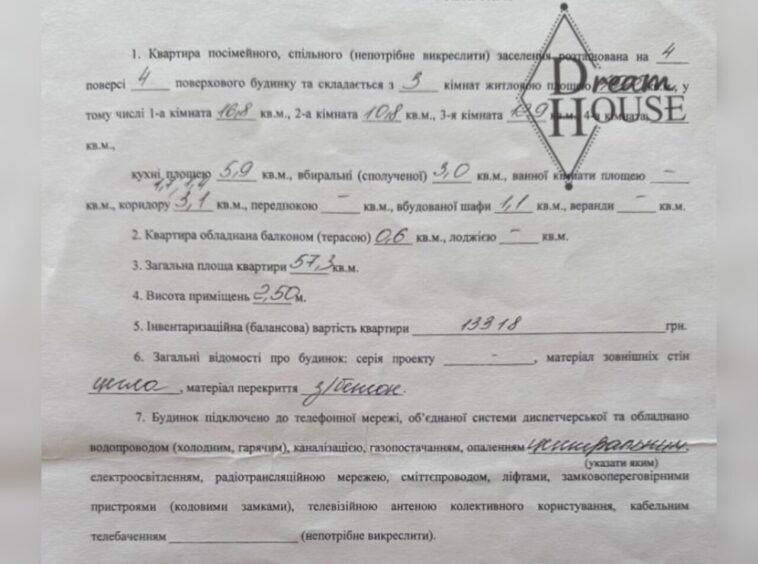 Dream
HOUSE
1. Квартира посімейного, спільного (непотрібне викреслити) заселення розташована на 4
поверсі 4 поверхового будинку та складається з 3 кімнат житловою площею кв.м., у
тому числі 1-а кімната 16,8 кв.м., 2-а кімната 10,8 кв.м., 3-я кімната кв.м., 4-а кімната
кв.м.,
кухні площею 5,9 кв.м., вбиральні (сполученої) 3,0 кв.м., ванної кімнати площею –
1,1 1,4
кв.м., коридору 3,1 кв.м., передпокою – кв.м., вбудованої шафи 1,1 кв.м., веранди – кв.м.
2. Квартира обладнана балконом (терасою) 0,6 кв.м., лоджією – кв.м.
3. Загальна площа квартири 57,3 кв.м.
4. Висота приміщень 2,50 м.
5. Інвентаризаційна (балансова) вартість квартири 13318 грн.
6. Загальні відомості про будинок: серія проекту – , матеріал зовнішніх стін
цегла , матеріал перекриття з/бетон.
7. Будинок підключено до телефонної мережі, об’єднаної системи диспетчерської та обладнано
водопроводом (холодним, гарячим), каналізацією, газопостачанням, опаленням центральним,
(указати яким)
електроосвітленням, радіотрансляційною мережею, сміттєпроводом, ліфтами, замковопереговірними
пристроями (кодовими замками), телевізійною антеною колективного користування, кабельним
телебаченням (непотрібне викреслити).